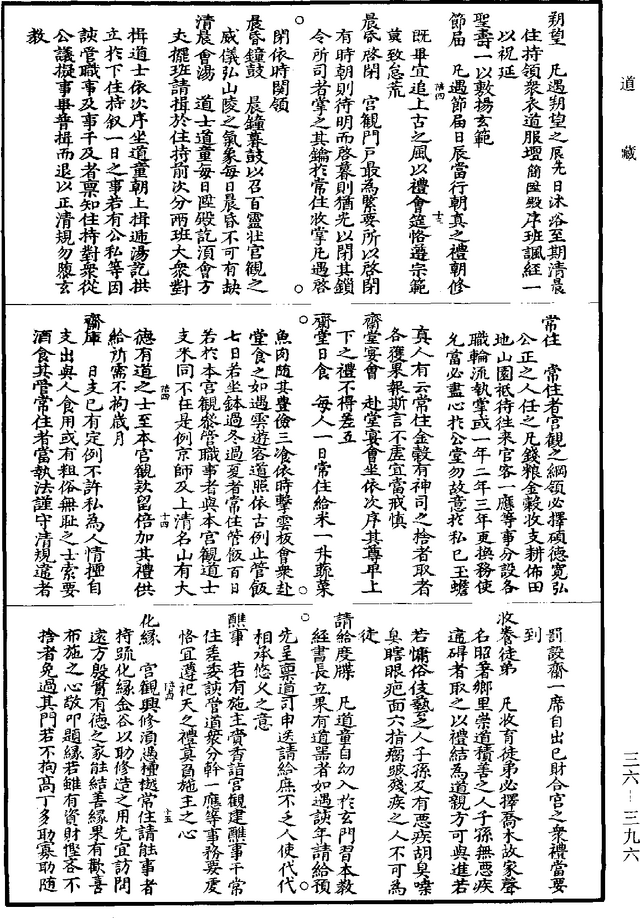 道藏
朔望　凡遇朔望之辰先日沐浴至期清晨
住持領衆衣道服壇簡陞殿序班諷經一
以祝延
聖壽一以敷揚玄範
節届　凡遇節届日辰當行朝真之禮朝修
既畢宜追上古之風以禮會筵恪遵宗範
莫致怠荒
晨昏啓閉　宮觀門户最爲緊要所以啓閉
有時朝則待明而啓暮則猶先以閉其鎖
令所司者掌之其鑰於常住收掌凡遇啓
閉依時關領
晨昏鐘鼓　晨鐘暮鼓以召百靈壯宮觀之
威儀弘山陵之氣象每日晨昏不可有缺
清晨會湯　道士道童每日陞殿訖湏會方
丈擺班請揖於住持前次分兩班大衆對
揖道士依次序坐道童朝上揖遞湯訖拱
立於下住持叙一日之事若有公私等因
該管職事及事干及者禀知住持對衆從
公議擬事畢普揖而退以正清規勿隳玄
教
常住　常住者宮觀之綱領必擇碩德寬弘
公正之人任之凡錢粮金穀收支耕佈田
地山園祗待往來官客一應等事分設各
職輪流執掌或一年二年三年更換務使
允當必盡心於公堂勿故意於私己玉蟾
真人有云常住金穀有神司之捨者取者
各獲果報斯言不虗宜當戒慎
齋堂宴會　赴堂宴會坐依次序其尊卑上
下之禮不得差互
齋堂日食　每人一日常住給米一升蔬菜
魚肉随其豊儉三飡依時擊雲板會衆赴
堂食之如遇雲遊客道照依古例止管飯
七日若坐鉢過冬過夏者常住管飯百日
若於本宮觀叅管職事者與本宮觀道士
支米同不在是例京師及上清名山有大
德有道之士至本宮觀欵留倍加其禮供
給所需不拘歳月
齋庫　日支已有定例不許私爲人情擅自
支出與人食用或有粗俗無耻之士索要
酒食其管常住者當執法謹守清規違者
罰設齋一席自出已財合宮之衆禮當要
到
收養徒弟　凡收育徒弟必擇喬木故家聲
名昭著鄉里崇道積善之人子孫無惡疾
違碍者取之以禮結爲道親方可與進若
若慵俗伎藝之人子孫及有悪疾胡臭嗓
臭瞎眼疤面六指瘤跛殘疾之人不可爲
徒
請給度牒　凡道童自幼入於玄門習本教
經書長立果有道器者如遇該年請給預
先呈禀道司申送請給庶不乏人使代代
相承悠乆之意
醮事　若有施主賫香詣宮觀建醮事干常
住委委該管道衆分幹一應等事務要虔
恪宜遵祀天之禮莫負施主之心
化縁　宮觀興修湏憑撞撾常住請能事者
持疏化縁金谷以助修造之用先宜訪問
遠方殷實有德之家能結善縁果有歡喜
布施之心敬叩題縁若雖有資財慳吝不
捨者免過其門若不拘髙丁多助寡助随
三六—三九六